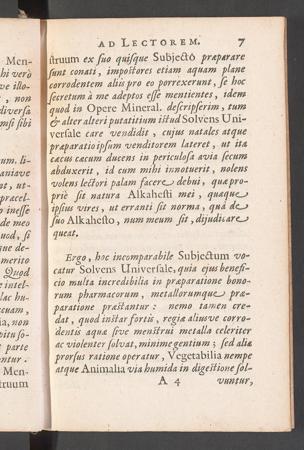 AD LECTOREM. 7
struum ex suo quisque Subjectô præparare
sunt conati, impostores etiam aquam plane
corrodentem aliis pro eo porrexerunt, se hoc
secretum à me adeptos esse mentientes, idem
quod in Opere Mineral. descripserim, tum
& alter alteri putatitium istud Solvens Uni-
versale care vendidit, cujus natales atque
præparatio ipsum venditorem lateret, ut ita
cæcus cæcum ducens in periculosa avia secum
abduxerit, id cum mihi innotuerit, nolens
volens lectori palam facere debui, quæ pro-
priè sit natura Alkahesti mei, quæque
ipsius vires, ut erranti sit norma, quâ de
suo Alkahesto, num meum sit, dijudicare
queat.
Ergo, hoc incomparabile Subjectum vo-
catur Solvens Universale, quia ejus benefi-
cio multa incredibilia in præparatione bono-
rum pharmacorum, metallorumque præ-
paratione præstantur: nemo tamen cre-
dat, quod instar fortis, regiæ aliusve corro-
dentis aquæ sive menstrui metalla celeriter
ac violenter solvat, minime gentium; sed aliâ
prorsus ratione operatur, Vegetabilia nempe
atque Animalia via humida in digestione sol-
A 4 vuntur,
Men-
hi verò
, non
diversa
um. li-
aniave
nt, ut-
præcel-
inesse
de meo
uod, si
ue de-
merito
Quod
e intel-
lac hu-
cuam,
ia, non
t parte
ntur.
Men-
truum